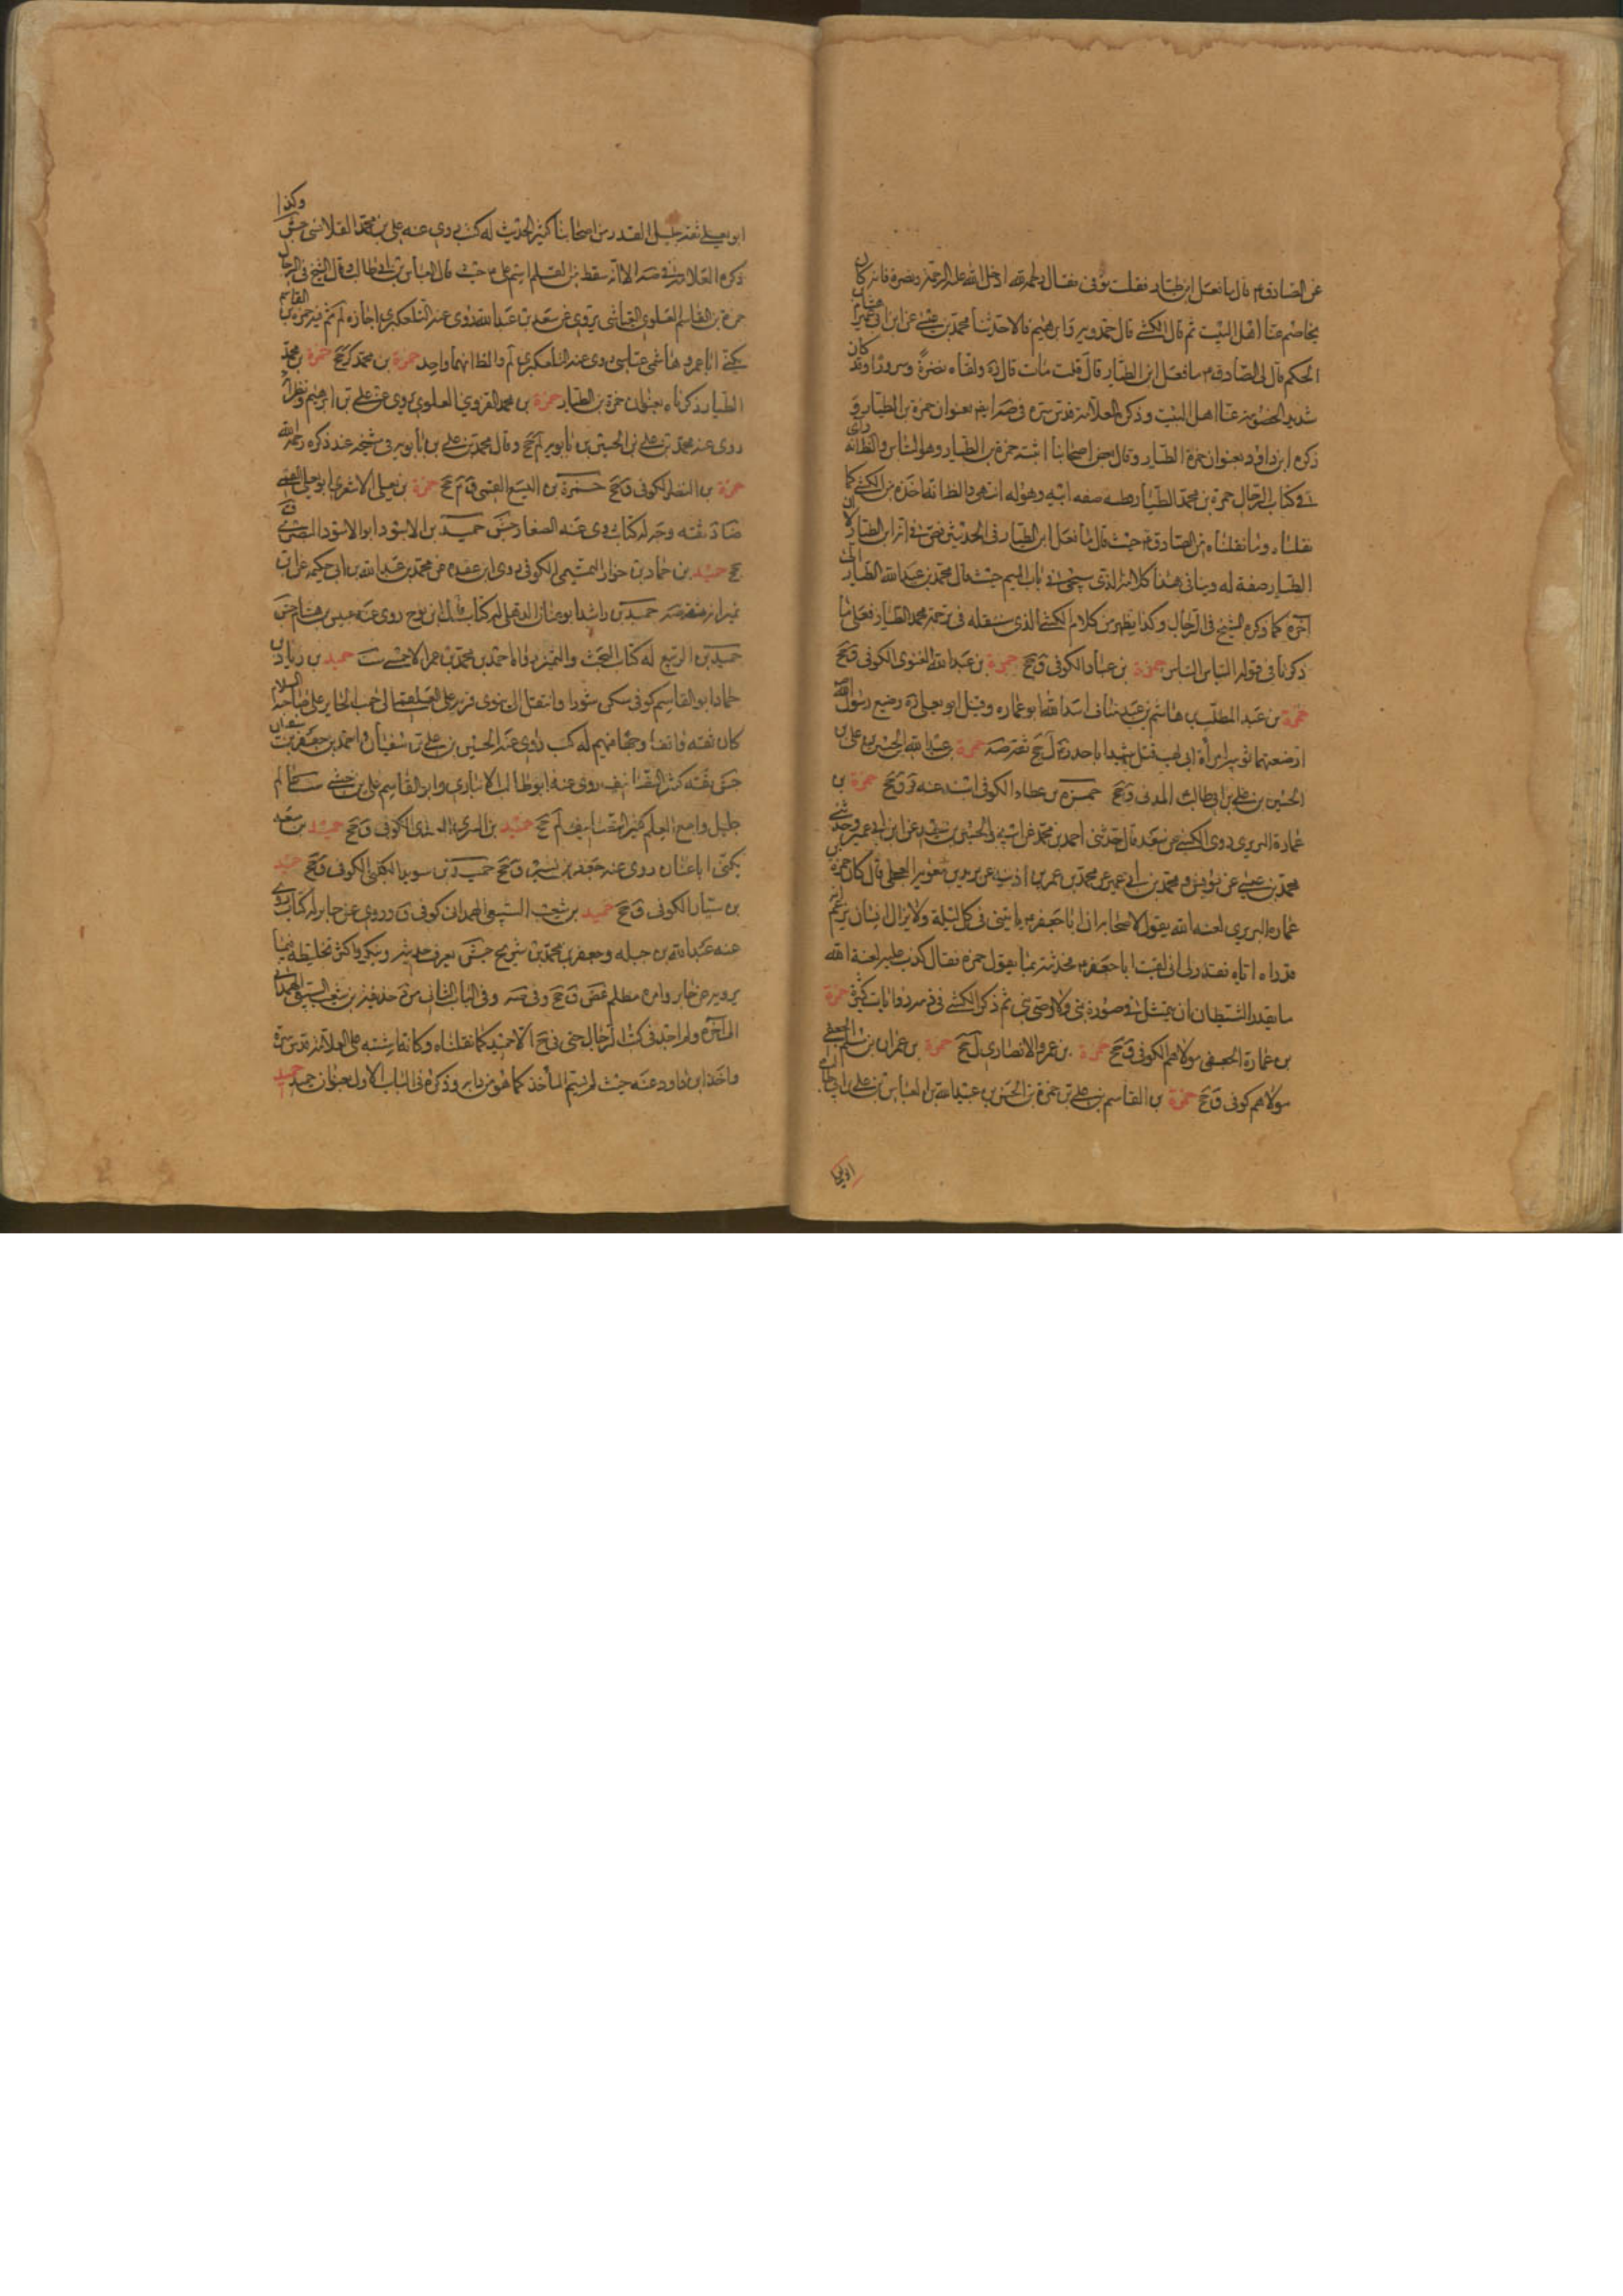 عن الصادق م قال ما فعل ابن طيار فقلت توفى فقال رحمه الله ادخل الله عليه الرحمة ونضره فانه كان
يخاصم عنا اهل البيت ثم قال الكشي قال حمدويه وابرهيم قالا حدثنا محمد بن عيسى عن ابن ابى عمير عن هشام بن
الحكم قال لى الصادق م ما فعل ابن الطيار قال قلت مات قال ره ولقاه نضرة وسرورا وقد كان
شديد الخصومة عنا اهل البيت وذكره العلامة قدس سره فى صه ايضا بعنوان حمزة بن الطيار و
ذكره ابن داود بعنوان حمزة الطيار وقال بعض اصحابنا اثبته حمزة بن الطيار وهو التباس والظ انه رأى
فى كتاب الرجال حمزة بن محمد الطيار وظنه صفه ابيه وهو له انتهى والظ انه اخذه من الكشي كما
نقلناه وما نقلناه من الصادق م حيث قال ما فعل ابن الطيار فى الحديثين نص فى اثر ابن الطيار لا ان
الطيار صفة له وينافى هذا كلامه الذى سيجئ فى باب الميم حيث قال محمد بن عبد الله الطيار الى
آخره كما ذكره الشيخ فى الرجال وكذا يظهر من كلام الكشي الذى سننقله فى ترجمة محمد الطيار فعلى ما
ذكرنا فى قوله التباس التباس حمزة بن عباد الكوفى ق جخ حمزة بن عبد الله الغنوى الكوفى ق جخ
حمزة بن عبد المطلب بن هاشم بن عبد مناف اسد الله ابو عماره وقيل ابو يعلى ره رضيع رسول الله
ارضعتهما ثويبه امرأة ابى لهب قتل شهيدا باحد ره ل جخ ثقة صه حمزة بن عبد الله بن الحسين بن على بن
الحسين بن على بن ابى طالب المدنى ق جخ حمزة بن عطاء الكوفى اسند عنه ق جخ حمزة بن
عمارة البربرى روى الكشي عن سعد قال حدثنى احمد بن محمد عن ابيه والحسين بن سعيد عن ابن ابى عمير وحدثنى
محمد بن عيسى عن يونس ومحمد بن ابى عمير عن محمد بن عمر بن اذينه عن بريد بن معوية العجلى قال كان حمزة بن
عماره البربرى لعنه الله يقول لاصحابه ان ابا جعفر م ياتينى فى كل ليلة ولا يزال انسان يزعم انه
قد راه اتاه فقدر لى انى لقيت ابا جعفر م فحدثته بما يقول حمزه فقال كذب عليه لعنة الله
ما يقدر الشيطان ان يتمثل فى صورة نبى ولا وصى نبى ثم ذكر الكشي فى ذمه روايات كثيرة حمزة
بن عمارة الجعفى مولاهم الكوفى ق جخ حمزة بن عمرو الانصارى ل جخ حمزة بن عمران بن مسلم الجعفى
مولاهم كوفى ق جخ حمزة بن القاسم بن على بن حمزة بن الحسن بن عبيد الله بن العباس بن على بن ابى طالب
ابو يعلى
ابو يعلى ثقه جليل القدر من اصحابنا كثير الحديث له كتب روى عنه على بن محمد القلانسى جش وكذا
ذكره العلامة فى صه الا انه سقط من القلم اسم على م حيث قال العباس بن ابى طالب وقال الشيخ فى الرجال
حمزة بن القاسم العلوى العباسى يروى عن سعد بن عبد الله روى عنه التلعكبرى اجازه لم ثم فيه حمزة بن القاسم
يكنى ابا عمرو هاشمى عباسى روى عنه التلعكبرى لم والظ انهما واحد حمزة بن محمد كر جخ حمزة بن محمد
الطيار ذكرناه بعنوان حمزة بن الطيار حمزة بن محمد القزوينى العلوى يروى عن على بن ابرهيم ونظرائه
روى عنه محمد بن على بن الحسين بن بابويه لم جخ وقال محمد بن على بن بابويه فى شيخه عند ذكره رحمه الله
حمزة بن النضر الكوفى ق جخ حمزة بن اليسع القمى ق م جخ حمزة بن يعلى الاشعرى ابو يعلى القمى
ضا د ثقه وجه له كتاب روى عنه الصفار جش حميد بن الاسود ابو الاسود البصرى ق
جخ حميد بن حماد بن حوار التميمى الكوفى روى ابن عقده عن محمد بن عبد الله بن ابى حكيمه عن ابن
نمير انه ثقة صه حميد بن راشد ابو غسان الذهلى له كتاب روى عنه عبيس بن هشام جش
حميد بن الربيع له كتاب البحث والتمييز رواه احمد بن محمد بن عمر الاحمسى ست حميد بن زياد بن
حماد ابو القاسم كوفى سكن سورا وانتقل الى نينوى قرية على العلقمى الى جنب الحاير على صاحبه السلام
كان ثقه واقفا وجها فيهم له كتب روى عنه الحسين بن على بن سفيان واحمد بن جعفر بن سفيان
جش ثقه كثير التصانيف روى عنه ابو طالب الانبارى وابو القاسم على بن حبشى ست عالم
جليل واسع العلم كثير التصانيف لم جخ حميد بن السرى العبدى الكوفى ق جخ حميد بن سعد
يكنى ابا غسان روى عنه جعفر بن بشير ق جخ حميد بن سويد الكلبى الكوفى ق جخ حميد
بن سيار الكوفى ق جخ حميد بن شعيب السبيعى الهمدانى كوفى ق وروى عن جابر له كتاب روى
عنه عبد الله بن جبله وجعفر بن محمد بن شريح جش يعرف حديثه وينكر واكثر تخليطه فيما
يرويه عن جابر وامره مظلم غض ق جخ وفى صه وفى الباب الثانى من د حديثه بن شعيب السبيعى الهمدانى
الى آخره ولم اجد فى كتب الرجال حتى فى جخ الا حميد كما نقلناه وكانه اشتبه على العلامة قدس سره
واخذ ابن داود عنه حيث لم يسم المأخذ كما هو من دابه وذكره فى الباب الاول بعنوان حميد حميد